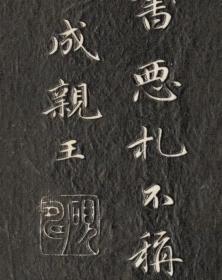 書惡札不稱
成親王